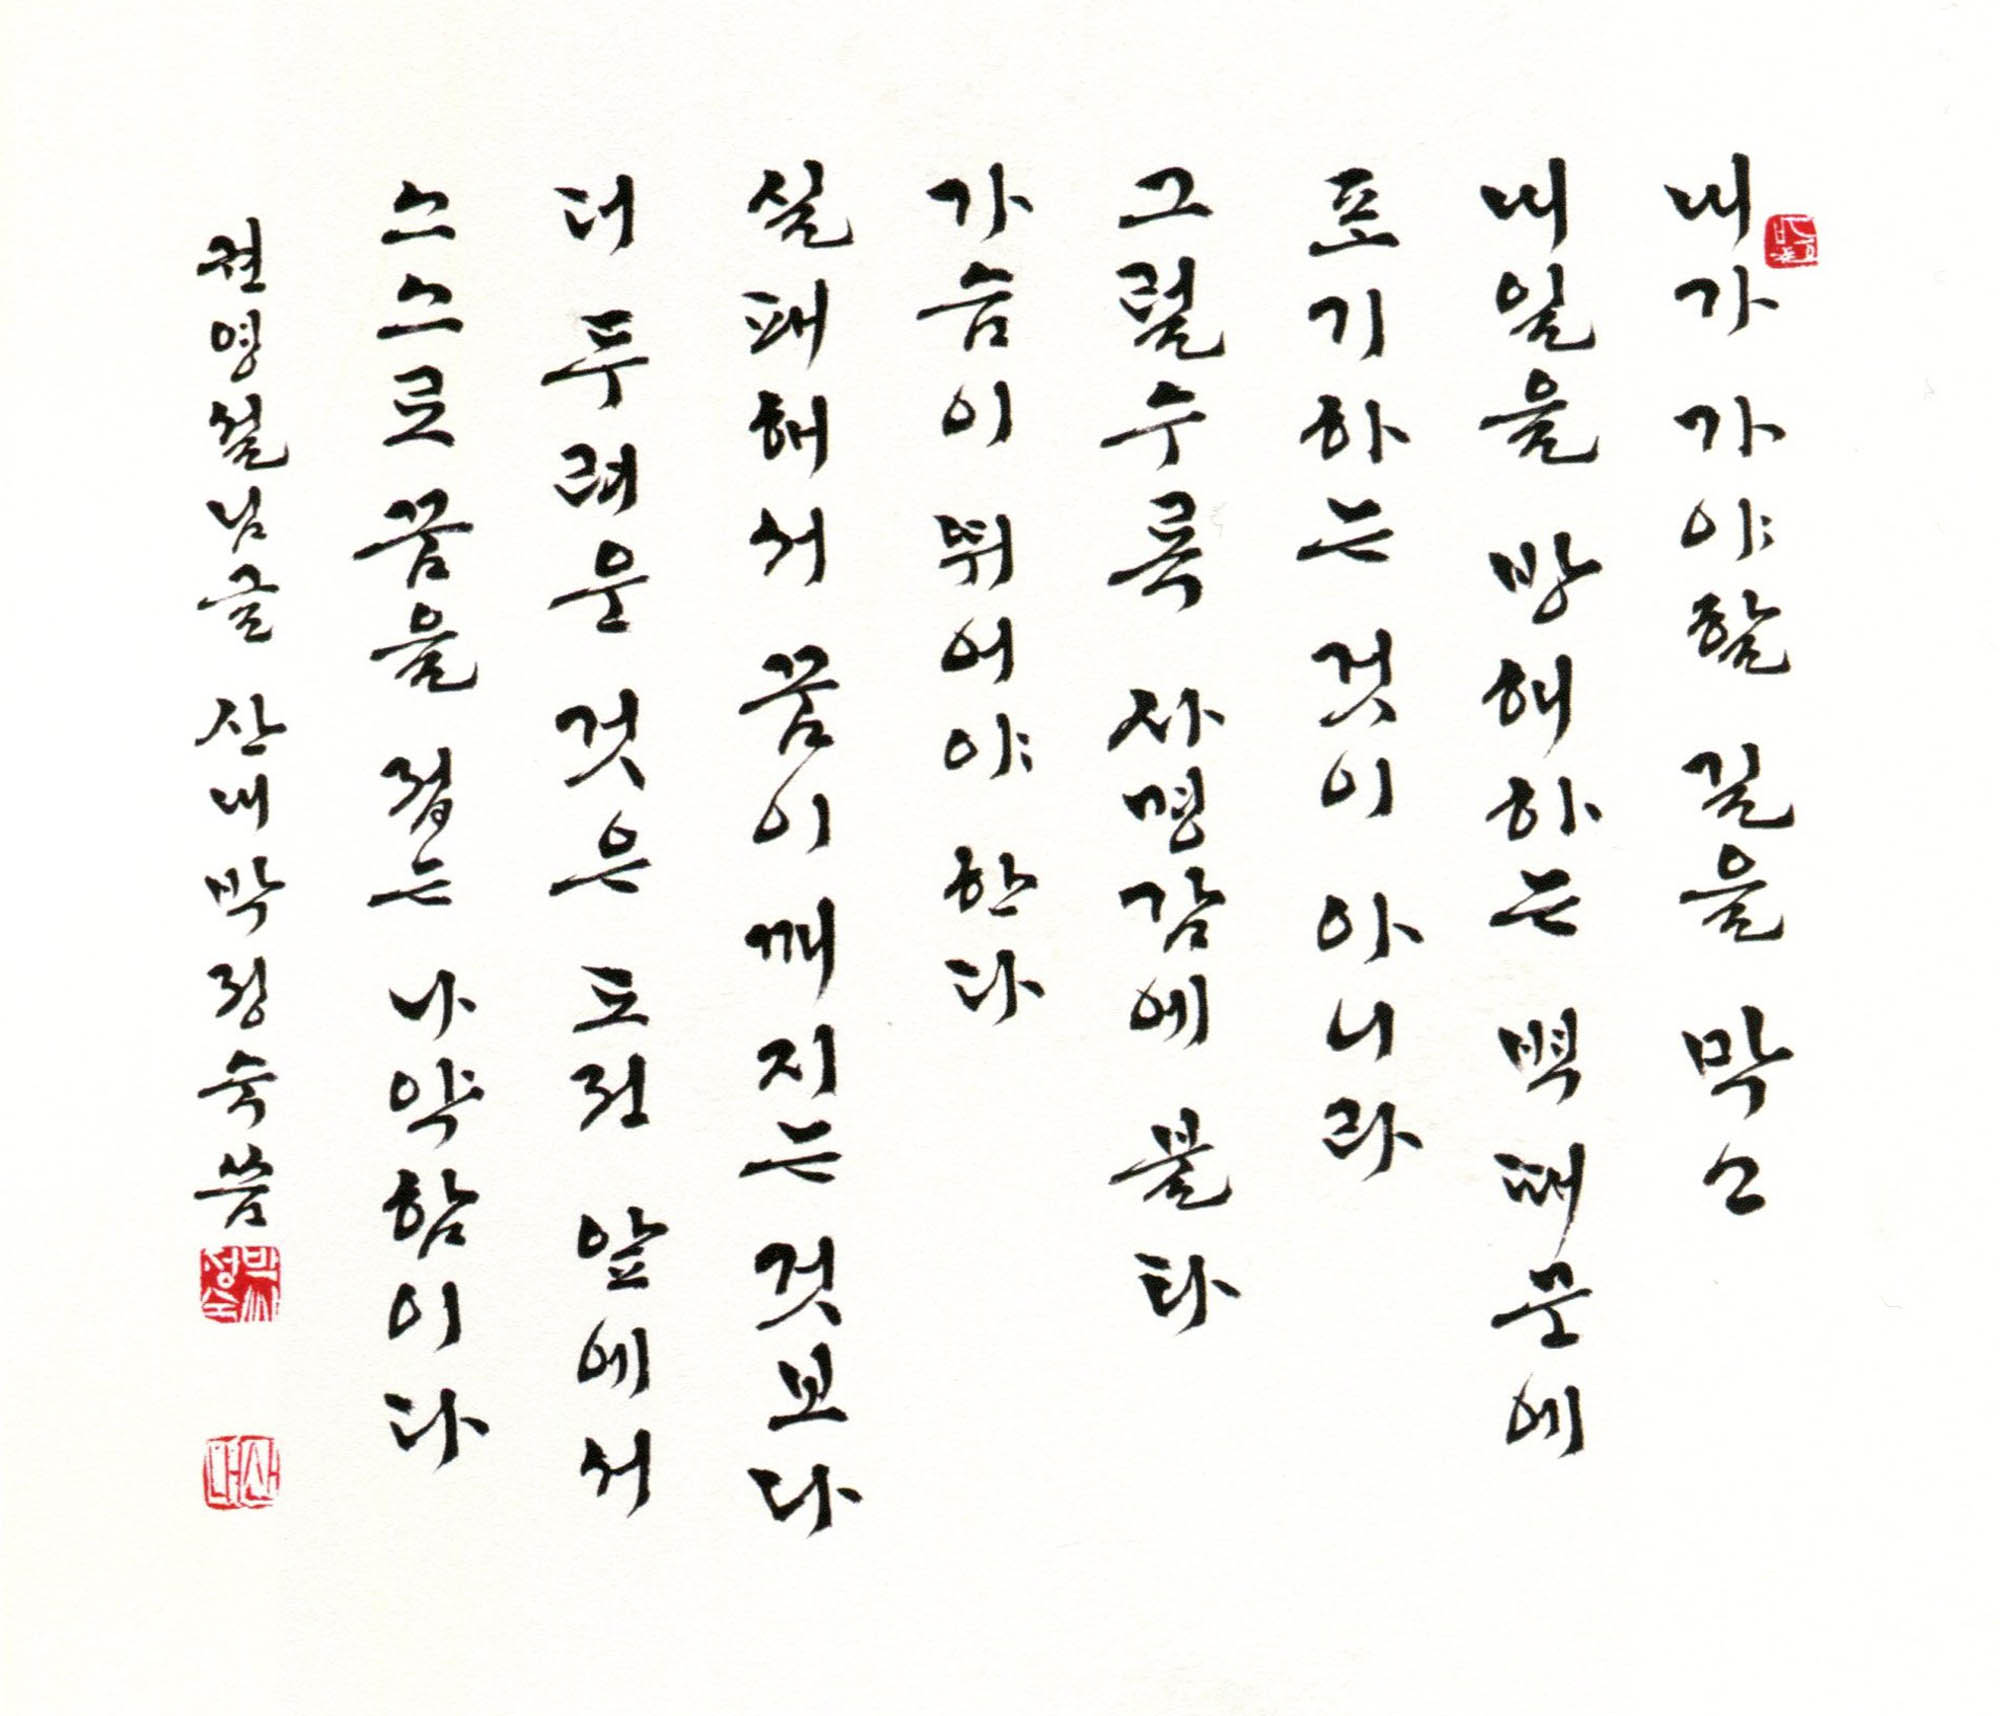 내가 가야할 길을 막고
내일을 방해하는 벽 때문에
포기하는 것이 아니라
그럴수록 사명감에 불타
가슴이 뛰어야 한다
실패해서 꿈이 깨지는 것보다
더 두려운 것은 도전 앞에서
스스로 꿈을 접는 나약함이다
권영설님글 산내 박정숙 씀
산내